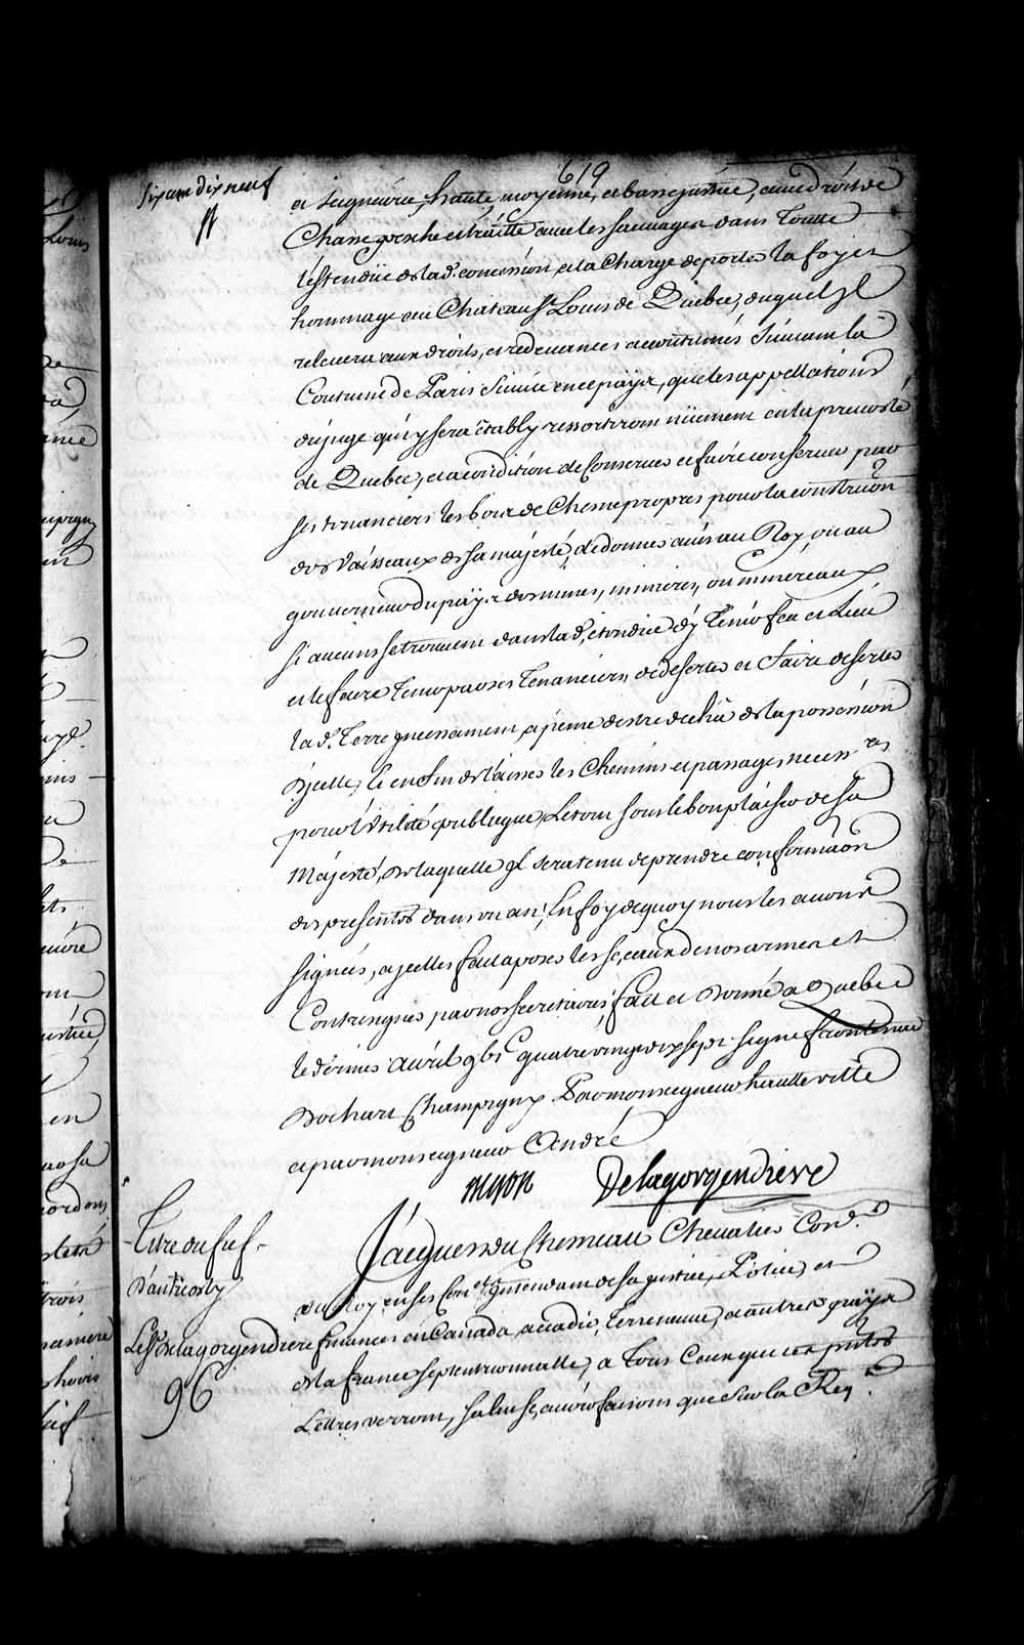 619
six cent dix neuf
et seigneurie, haute, moyenne, et basse justice, avec droit de
Chasse pesche et traitte avec les sauvages dans toutte
l'estendüe de lad. concession, a la Charge de porter la foy et
hommage au Chateau St. Louis de Quebec, duquel Jl
relevera aux droits, et redevances accoutumés suivant la
Coutume de Paris suivie en ce païs, que les appellations
du juge qui y sera étably ressortiront nüement en la prevosté
de Quebec, et a condition de conserver et faire conserver par
ses tenanciers les bois de Chesne propres pour la construc͠on
des Vaisseaux de sa majesté, de donner avis au Roy, ou au
gouverneur du païs des mines, minieres, ou minereaux,
si aucuns se trouvent dans lad. étendüe d'y tenir feu et Lieu
et le faire tenir par ses Tenanciers, de deserter et faire deserter
lad. Terre incessament, a peine destre dechu de la possession
d'jcelle, et enfin de laisser les Chemins et passages necess.res
pour l'Utilité publique, Le tout sous le bon plaisir de sa
Majesté, de laquelle jl sera tenu de prendre confirma͠on
des presentes dans un an, En foy de quoy nous les avons
signées, a jcelles fait aposer les sceaux de nos armes et
Contresigner par nos secretaires, fait et donné a Quebec
le dernier avril gbi^c quatre vingt dix sept signé frontenac
Bochart Champigny. Par monseigneur hautteville
et par monseigneur André
Delagorgendiere
Titre du fief
D'anticosty
Le Sr. Delagorgendiere
96
Jacques du Chesneau Chevalier Con.er
du Roy en ses Con.els Jntendant de la justice, Police, et
finances en Canada, accadie, Terreneuve, et autres païs
de la france septentrionnalle, a Tous Ceux que ces p͠ntes
Lettres verront, salut, sçavoir faisons que sur la Req.te